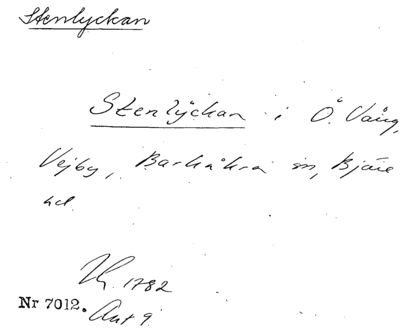 Stenlyckan
Stenlÿckan i Ö. Vång,
Vejby, Barkåkra sn, Bjäre
hd.
1782
Nr 7012. Akt 9.